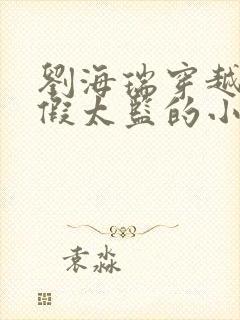 劉海瑞穿越
假太監的小
袁淼